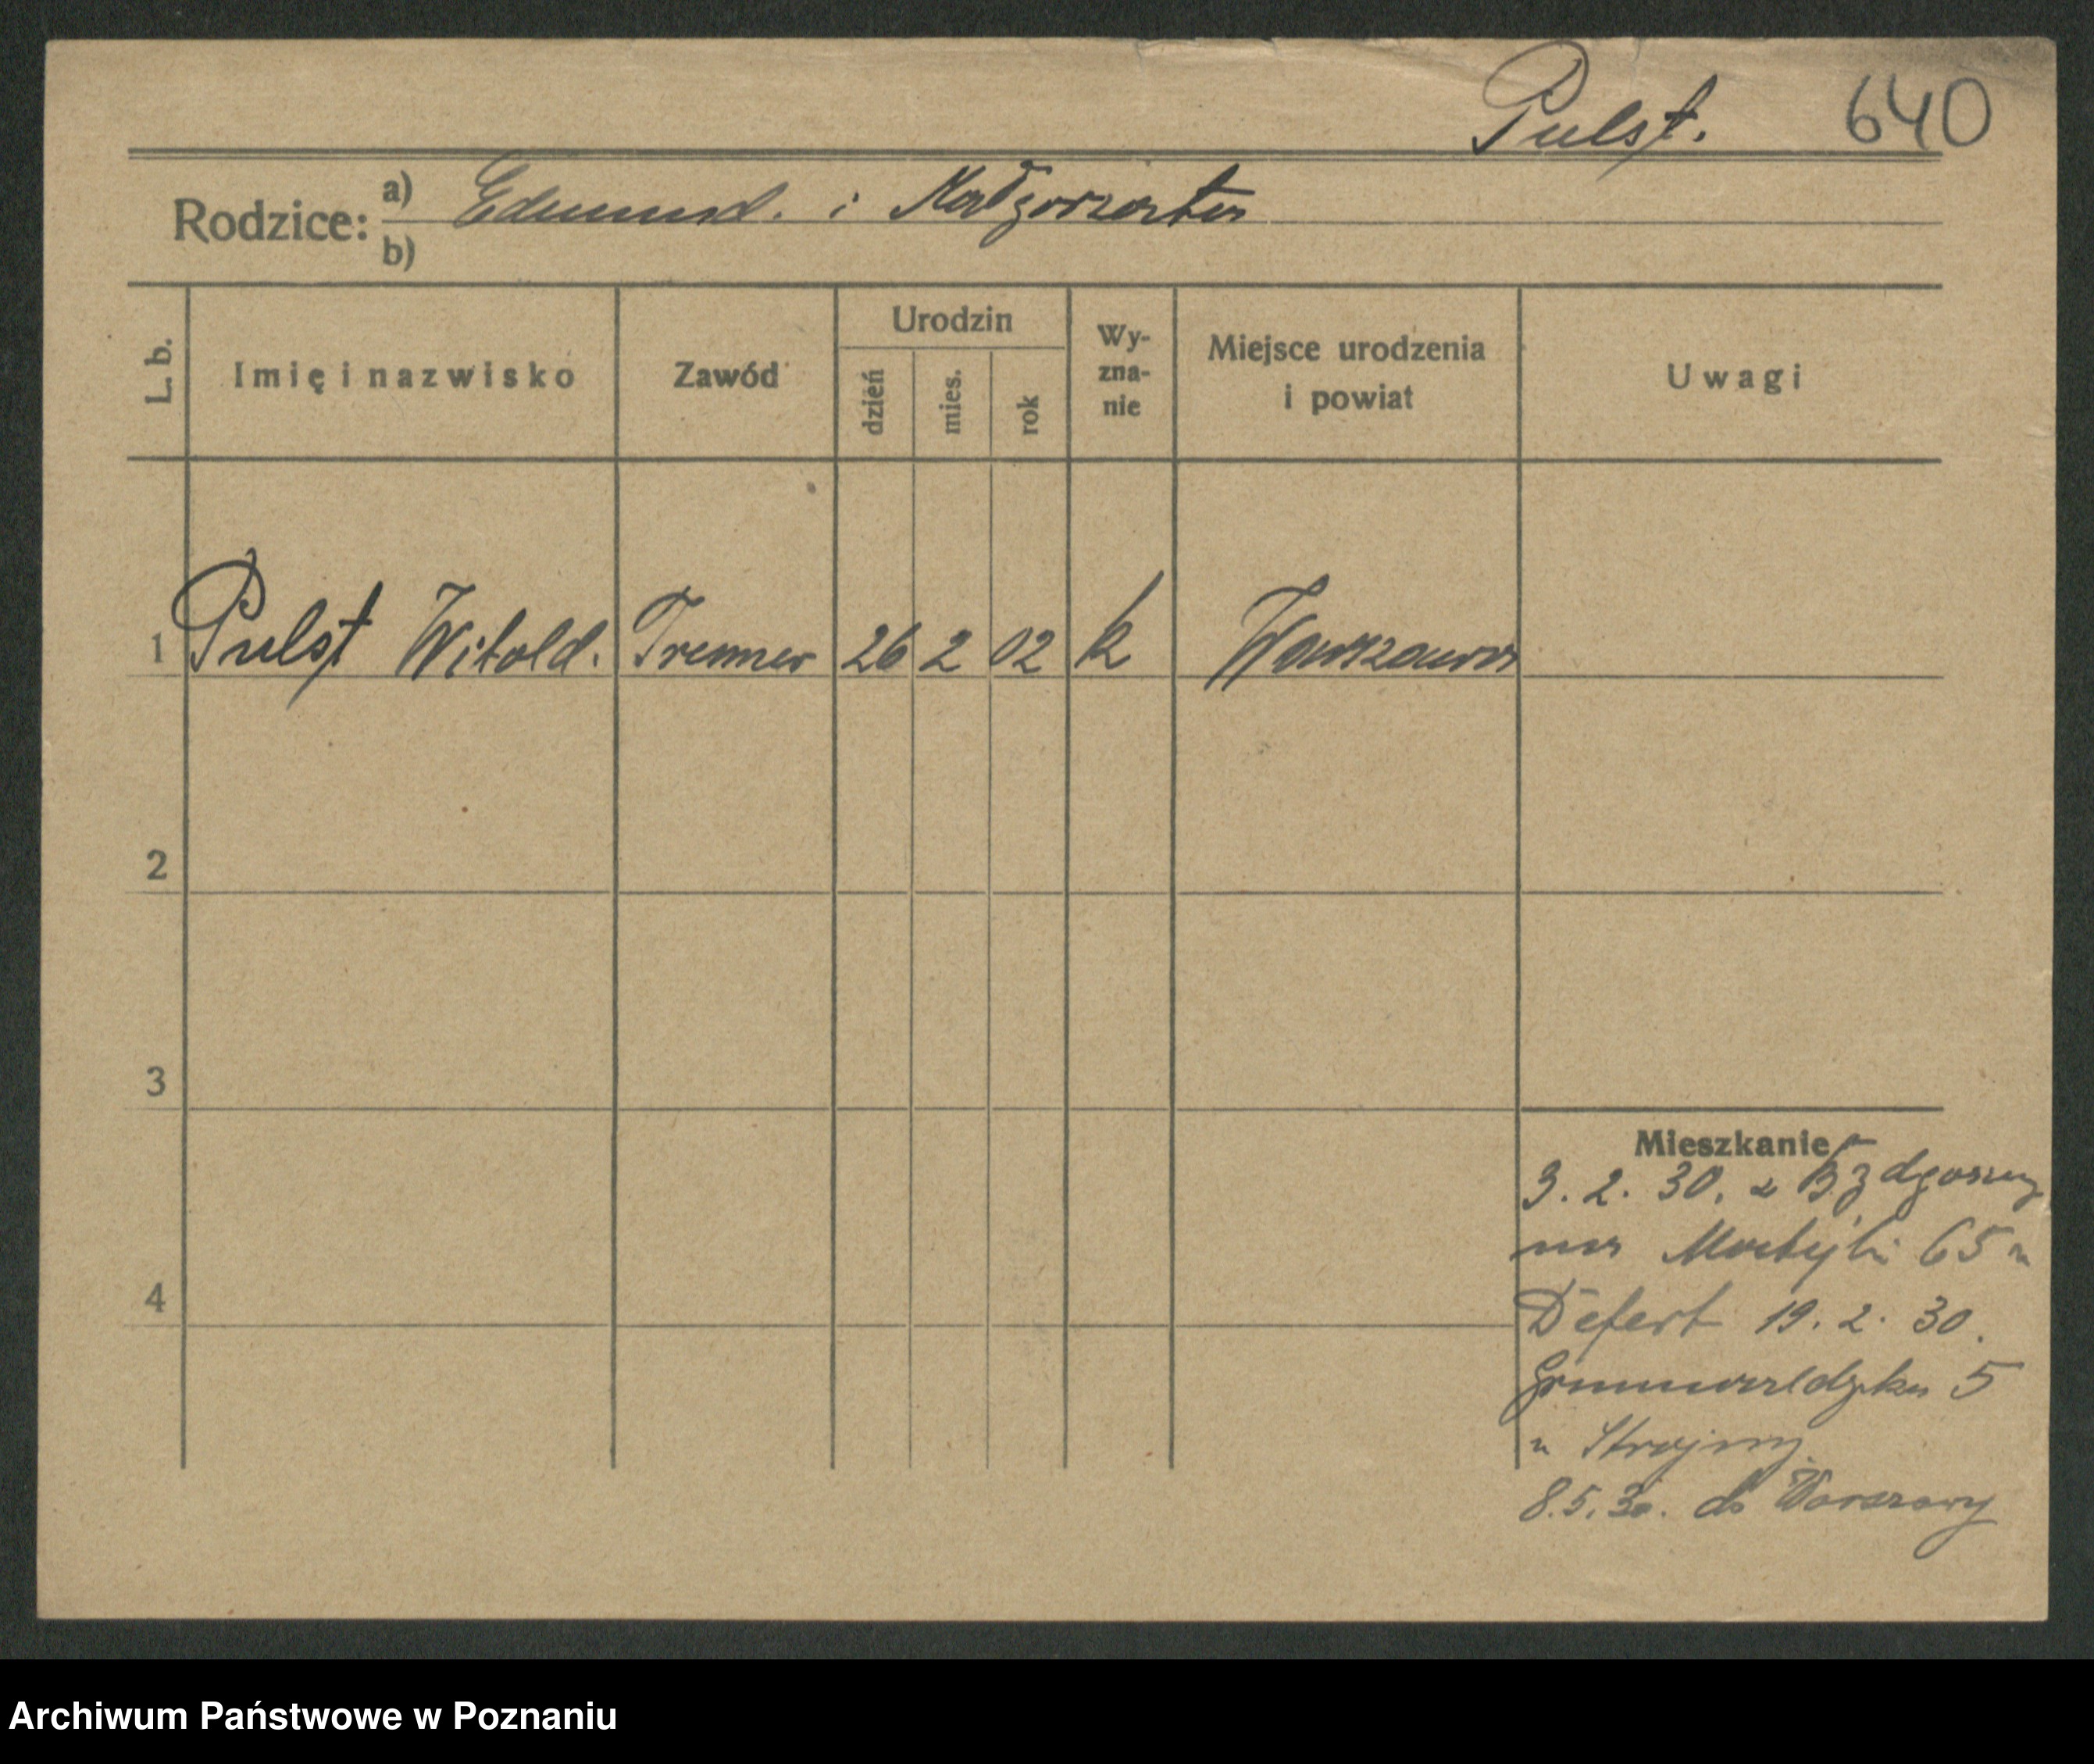 Pulst. 640
Rodzice: a) Edmund. i Małgorzata
b)
L. b.
Imię i nazwisko
Zawód
Urodzin
dzień
mies.
rok
Wy-
zna-
nie
Miejsce urodzenia
i powiat
Uwagi
1 Pulst Witold. Trener 26 2 02 k Warszawa
2
3
4
Mieszkanie
3. 2. 30. z Bydgoszczy
na 65 u
Defert 19. 2. 30.
Grunwaldzka 5
u Strojny.
8.5.30. do Warszawy
Archiwum Państwowe w Poznaniu